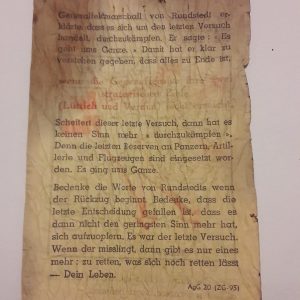 Generalfeldmarschall von Rundstedt er-
klärte, dass es sich um den letzten Versuch
handelt, durchzukämpfen. Er sagte: « Es
geht ums Ganze. » Damit hat er klar zu
verstehen gegeben, dass alles zu Ende ist,
wenn die
strategischen Ziele
(Lüttich und Verdun)
Scheitert dieser letzte Versuch, dann hat es
keinen Sinn mehr « durchzukämpfen ».
Denn die letzten Reserven an Panzern, Artil-
lerie und Flugzeugen sind eingesetzt wor-
den. Es ging ums Ganze.
Bedenke die Worte von Rundstedts wenn
der Rückzug beginnt. Bedenke, dass die
letzte Entscheidung gefallen ist, dass es
dann nicht den geringsten Sinn mehr hat,
sich aufzuopfern. Es war der letzte Versuch.
Wenn der misslingt, dann gibt es nur eines
mehr: zu retten, was sich noch retten lässt
— Dein Leben.
ApG 20 (ZG 95)